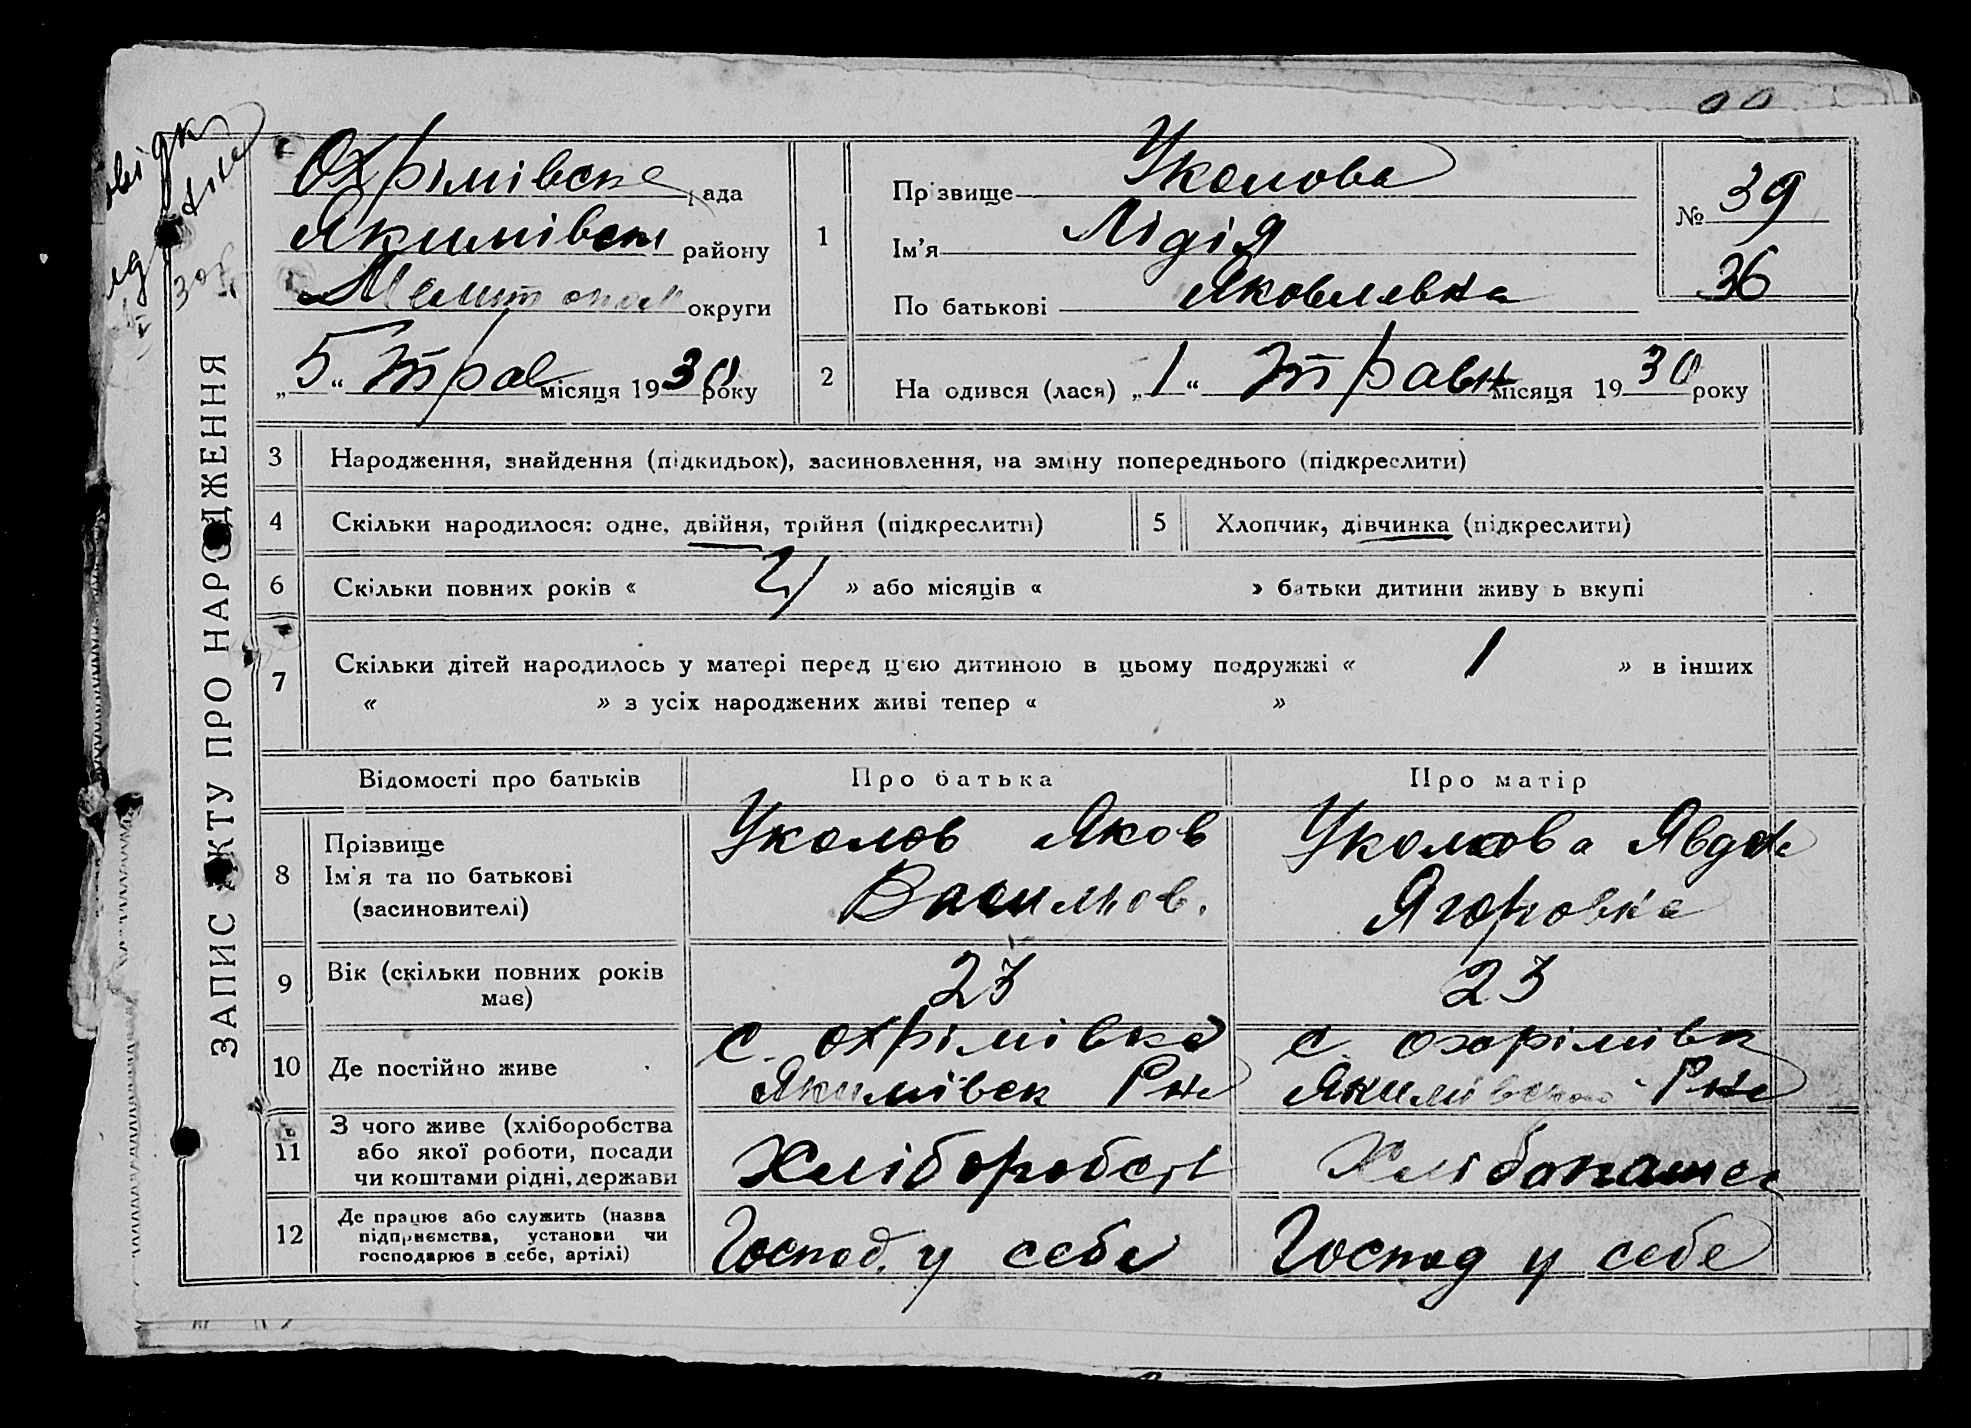 ЗАПИС АКТУ ПРО НАРОДЖЕННЯ
Охрімівска рада
Якимівськ району
Мелитопол округи
„5“ трав місяця 1930 року
1
Прізвище Уколова
Ім'я Лідія
По батькові Яковлевна
№ 39
36
2 На одився (лася) „1“ Травн місяця 1930 року
3 Народження, знайдення (підкидьок), засиновлення, на зміну попереднього (підкреслити)
4 Скільки народилося: одне, двійня, трійня (підкреслити)
5 Хлопчик, дівчинка (підкреслити)
6 Скільки повних років « 4 » або місяців « » батьки дитини живу ь вкупі
7 Скільки дітей народилось у матері перед цєю дитиною в цьому подружжі « 1 » в інших
« » з усіх народжених живі тепер « »
Відомості про батьків Про батька Про матір
8 Прізвище
Ім'я та по батькові
(засиновителі)
Уколов Яков
Васильов.
Уколова Явдок
Ягоровна
9 Вік (скільки повних років
має)
23
23
10 Де постійно живе
с. Охрімівка
Якимівск Рне
с. Охорімівк
Якимівского Рне
11 З чого живе (хліборобства
або якої роботи, посади
чи коштами рідні, держави
Хліборобст
Хлібопашес
12 Де працює або служить (назва
підприємства, установи чи
господарює в себе, артілі)
Господ. у себе
Господ у себе